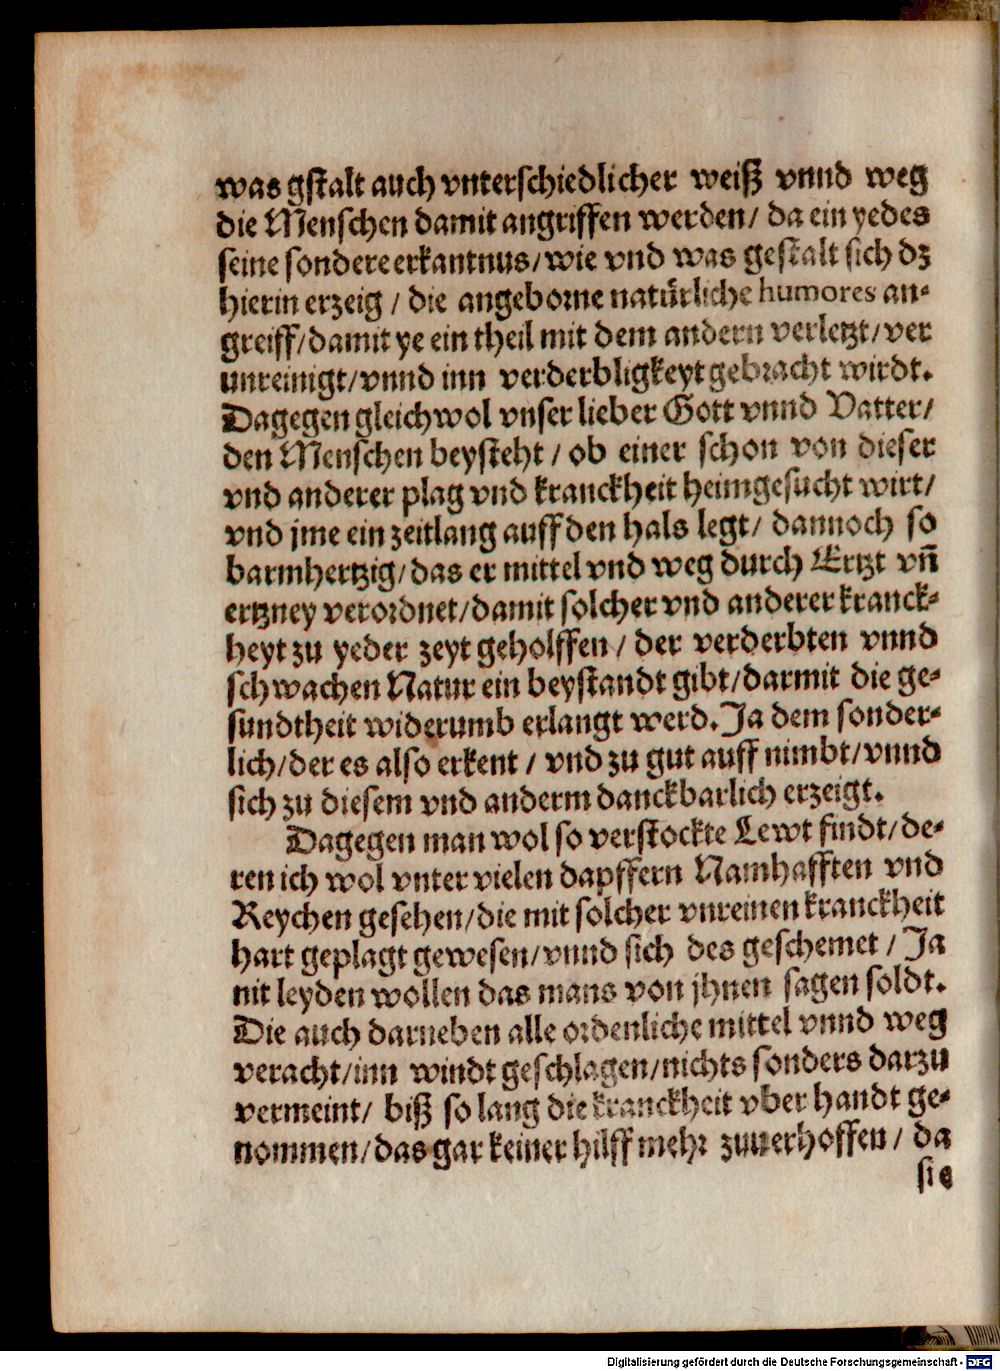 was gstalt auch vnterschiedlicher weiß vnnd weg
die Menschen damit angriffen werden/ da ein yedes
seine sondere erkantnus/wie vnd was gestalt sich dz
hierin erzeig / die angeborne natürliche humores an-
greiff/damit ye ein theil mit dem andern verletzt/ver
unreinigt/vnnd inn verderbligkeyt gebracht wirdt.
Dagegen gleichwol vnser lieber Gott vnnd Vatter/
den Menschen beysteht / ob einer schon von dieser
vnd anderer plag vnd kranckheit heimgesucht wirt/
vnd jme ein zeitlang auff den hals legt/ dannoch so
barmhertzig/das er mittel vnd weg durch Ertzt vñ
ertzney verordnet/damit solcher vnd anderer kranck-
heyt zu yeder zeyt geholffen / der verderbten vnnd
schwachen Natur ein beystandt gibt/darmit die ge-
sundtheit widerumb erlangt werd. Ja dem sonder-
lich/der es also erkent / vnd zu gut auff nimbt/vnnd
sich zu diesem vnd anderm danckbarlich erzeigt.
Dagegen man wol so verstockte Lewt findt/de-
ren ich wol vnter vielen dapffern Namhafften vnd
Reychen gesehen/die mit solcher vnreinen kranckheit
hart geplagt gewesen/vnnd sich des geschemet / Ja
nit leyden wollen das mans von jhnen sagen soldt.
Die auch darneben alle ordenliche mittel vnnd weg
veracht/inn windt geschlagen/nichts sonders darzu
vermeint/ biß so lang die kranckheit vber handt ge-
nommen/das gar keiner hilff mehr zuuerhoffen / da
sie
Digitalisierung gefördert durch die Deutsche Forschungsgemeinschaft - DFG